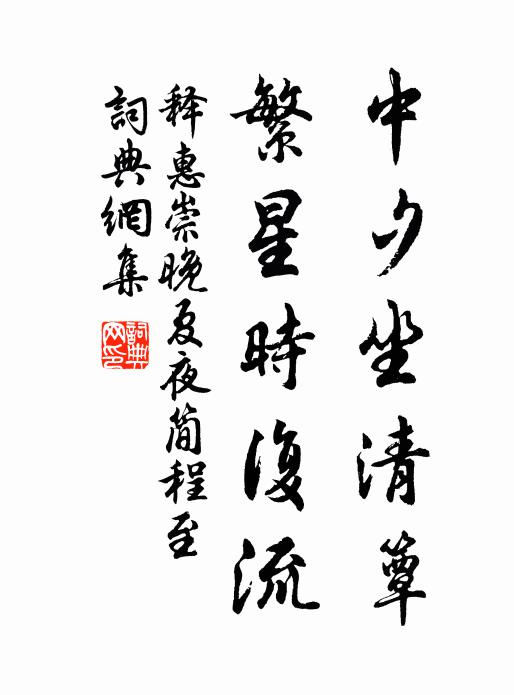 中夕坐清簟
繁星時復流
释惠崇晚夏夜簡程至
詞典網集
詞典網印